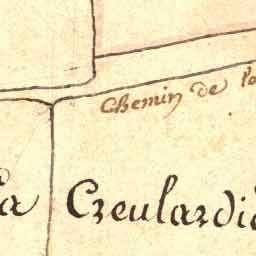 Chemin de
La Creulardi